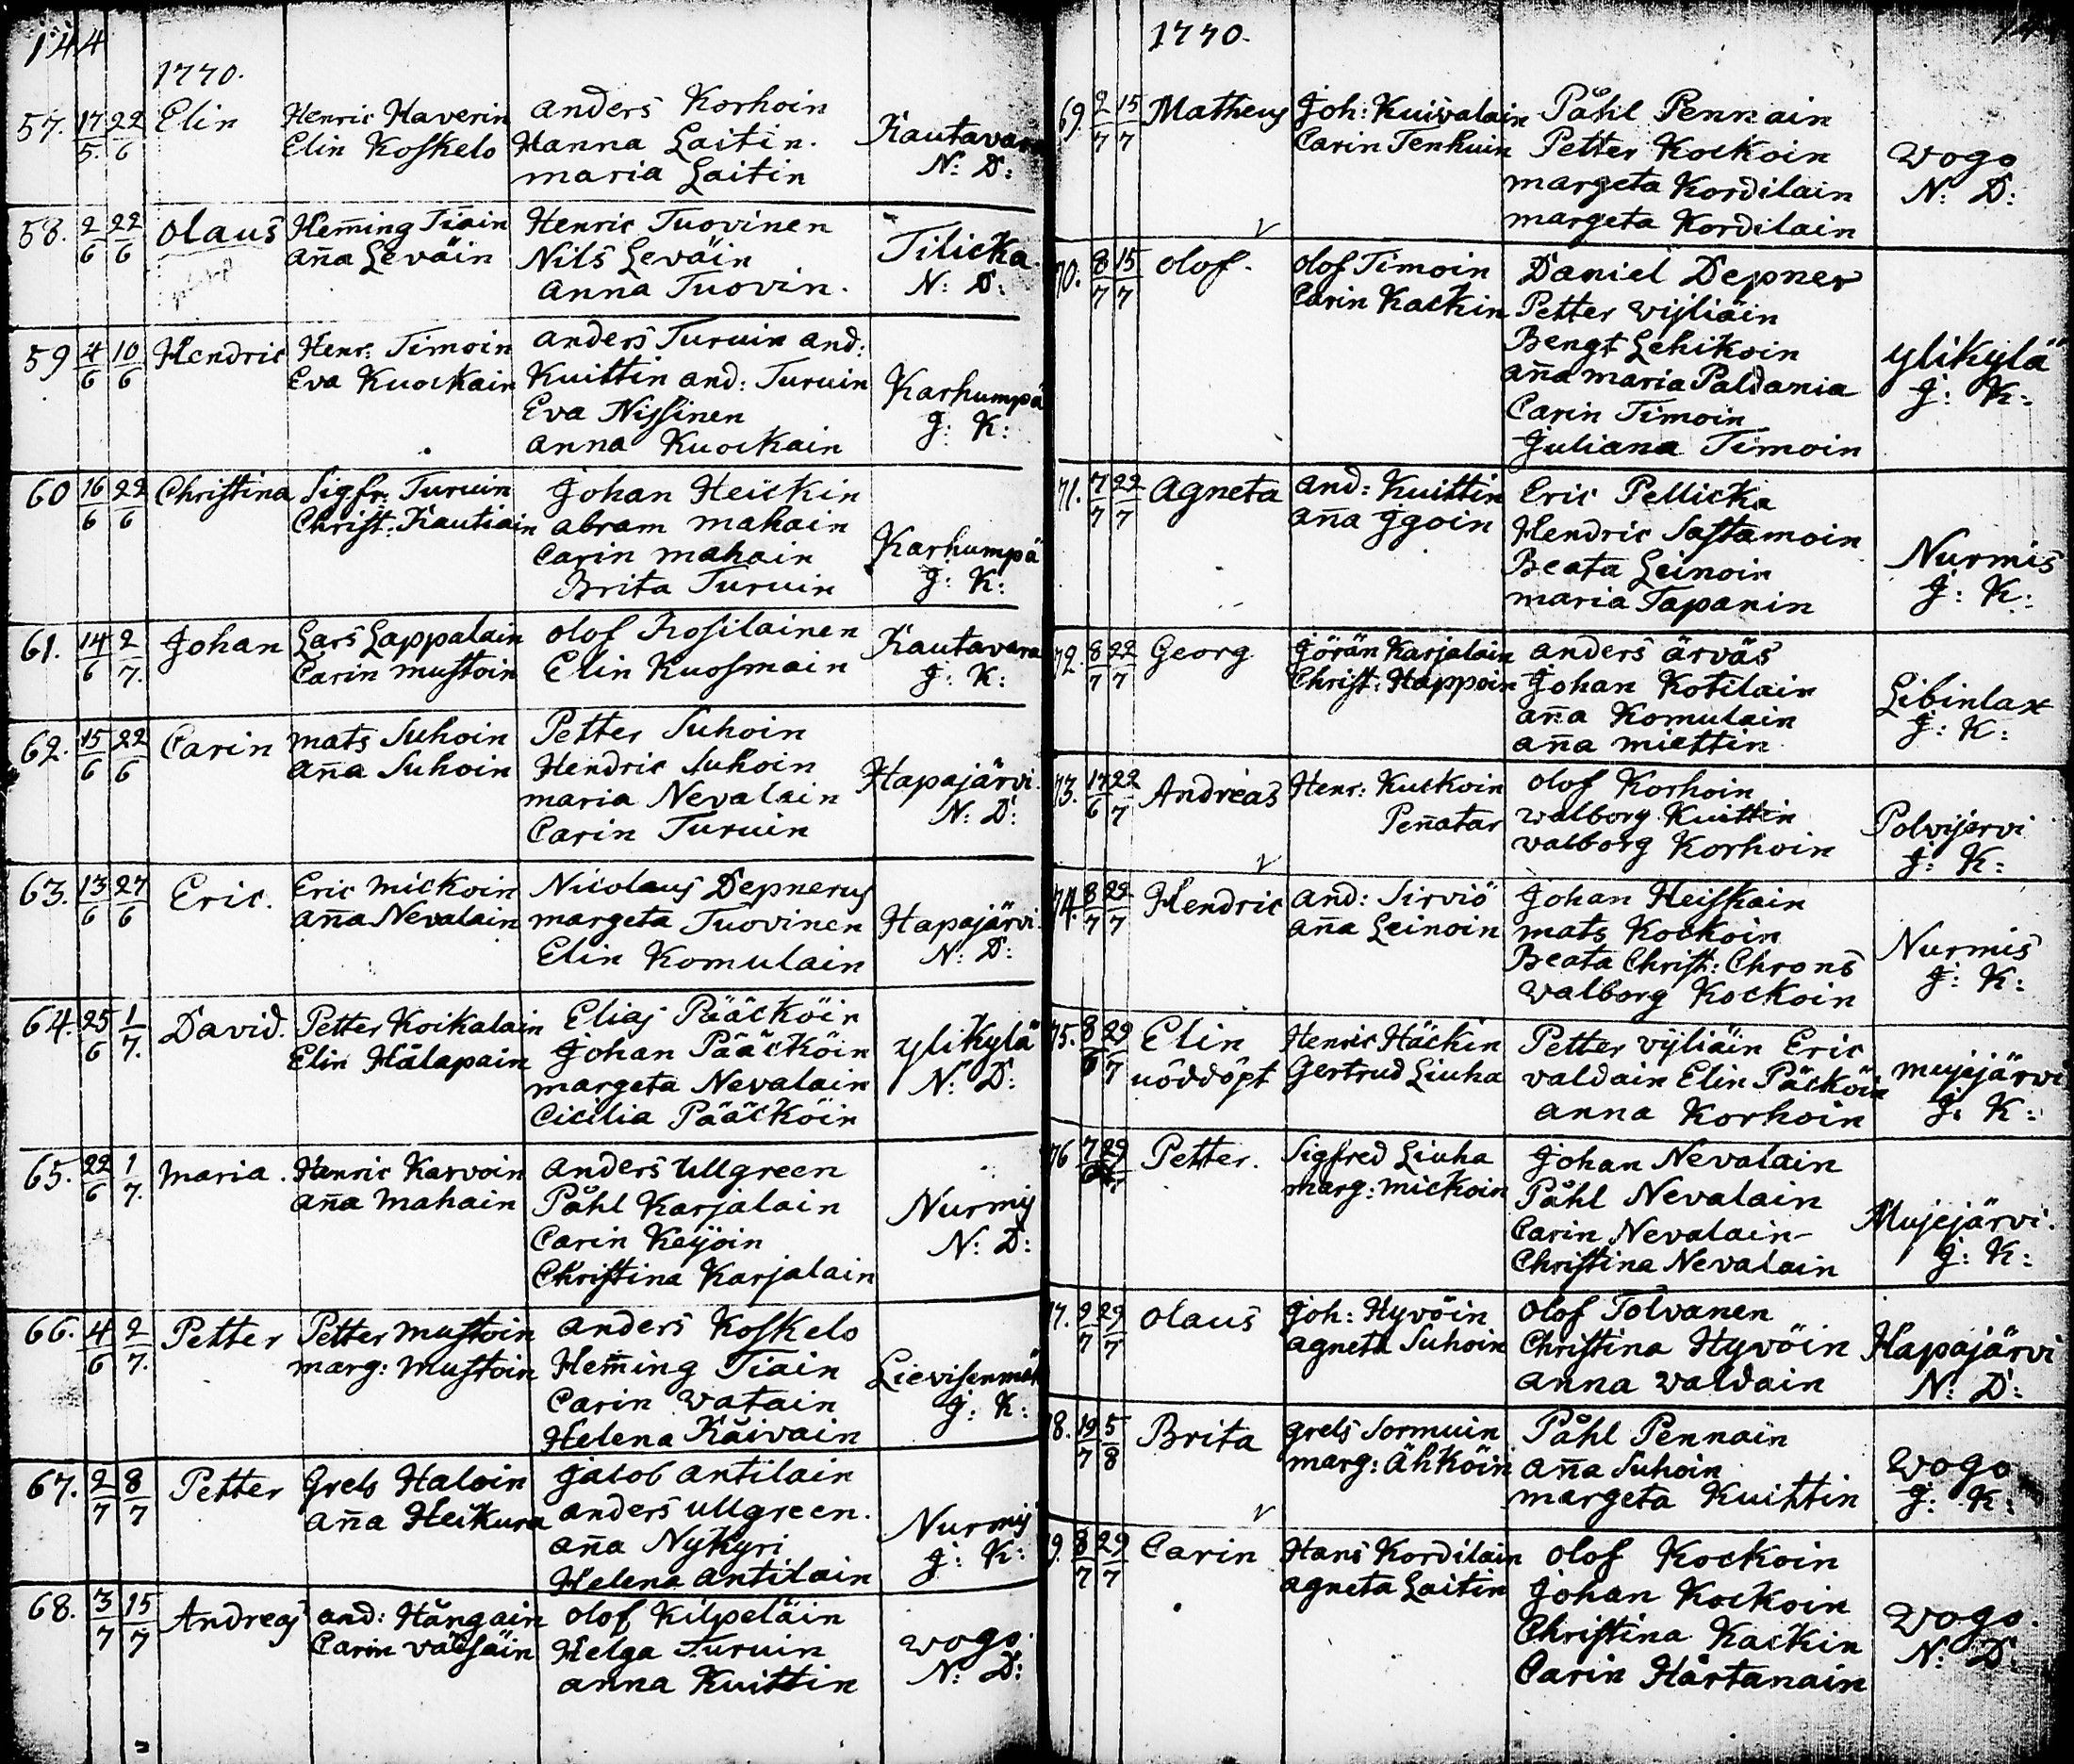 144
1770.
57. 17/5. 22/6 Elin Henric Haverin anders Korhoin
Elin Koskelo Hanna Laitin. Kautavara
maria Laitin N: D:
58. 2/6 22/6 olaus Heming Tiain Henric Tuovinen
aña Leväin Nils Leväin Tilicka.
anna Tuovin. N: D:
59 4/6 10/6 Hendric Henr: Timoin anders Turuin and:
Eva Kuockain Kuittin and: Turuin Karhumpä
Eva Nissinen J: K:
anna Kuockain
60 16/6 22/6 Christina Sigfr: Turuin Johan Heickin
Christ: Kautiain abram mahain
Carin mahain Karhumpä
Brita Turuin J: K:
61. 14/6 2/7. Johan Lars Lappalain olof Rosilainen Kautavara
Carin mustoin Elin Kuosmain J: K:
62. 15/6 22/6 Carin mats Suhoin Petter Suhoin
aña Suhoin Hendric Suhoin Hapajärvi.
maria Nevalain N: D:
Carin Turuin
63. 13/6 27/6 Eric. Eric mickoin Nicolaus Depnerus
aña Nevalain margeta Tuovinen Hapajärvi.
Elin Komulain N: D:
64. 25/6 1/7. David. Petter Koikalain Elias Pääcköin
Elin Hålapain Johan Pääcköin ylikylä
margeta Nevalain N: D:
Cicilia Pääcköin
65. 22/6 1/7. maria. Henric Karvoin anders ullgreen
aña mahain Påhl Karjalain Nurmis
Carin Keijoin N: D:
Christina Karjalain
66. 4/6 2/7. Petter Petter mustoin anders Koskelo
marg: mustoin Heming Tiain Lievisenmäk
Carin watain J: K:
Helena Käivain
67. 2/7 8/7 Petter Grels Haloin Jacob antilain
aña Heikura anders ullgreen.
aña Nykyri Nurmis
Helena antilain J: K:
68. 3/7 15/7 Andreas and: Hångain olof Kilpeläin
Carin väisäin Helga Turuin wogo.
anna Kuittin N: D:
1770.
69. 2/7 15/7 Matheus Joh: Kuivalain Påhl Pennain
Carin Tenhuin Petter Kockoin wogo
margeta Kordilain N: D:
margeta Kordilain
70. 8/7 15/7 olof. olof Timoin Daniel Depner
Carin Kackin Petter wijliäin
Bengt Lehikoin ylikylä
aña maria Paldania J: K:
Carin Timoin
Juliana Timoin
71. 7/7 22/7 agneta and: Kuittin Eric Pellicka
aña Jgoin Hendric Sastamoin
Beata Leinoin Nurmis
maria Tapanin J: K:
72. 8/7 22/7 Georg Jörän Karjalain anders ärväs
Christ: Happoin Johan Kotilain Libinlax
aña Komulain J: K:
aña miettin
73. 17/6 22/7 Andreas Henr: Kuckoin olof Korhoin
Peñatar walborg Kuittin Polvijervi
valborg Korhoin J: K:
74. 8/7 22/7 Hendric and: Sirviö Johan Heiskain
aña Leinoin mats Kockoin Nurmis
Beata Christ: Chrons J: K:
walborg Kockoin
75. 8/6 29/7 Elin Henric Häckin Petter vijliäin Eric
nöddöpt Gertrud Liuha valdain Elin Päcköin mujejärvi
anna Korhoin J: K:
76 7/ 29/ Petter. Sigfred Liuha Johan Nevalain
marg: mickoin Påhl Nevalain Mujejärvi.
Carin Nevalain J: K:
Christina Nevalain
77. 9/7 29/7 olaus Joh: Hyvöin olof Tolvanen
agneta Suhoin Christina Hyvöin Hapajärvi
anna waldain N: D:
78. 19/7 5/8 Brita grels Sormuin Påhl Pennain
marg: Ähköin aña Suhoin wogo
margeta Kuittin J: K:
79. 8/7 29/7 Carin Hans Kordilain olof Kockoin
agneta Laitin Johan Kockoin
Christina Kackin wogo.
Carin Hårtanain N: D: